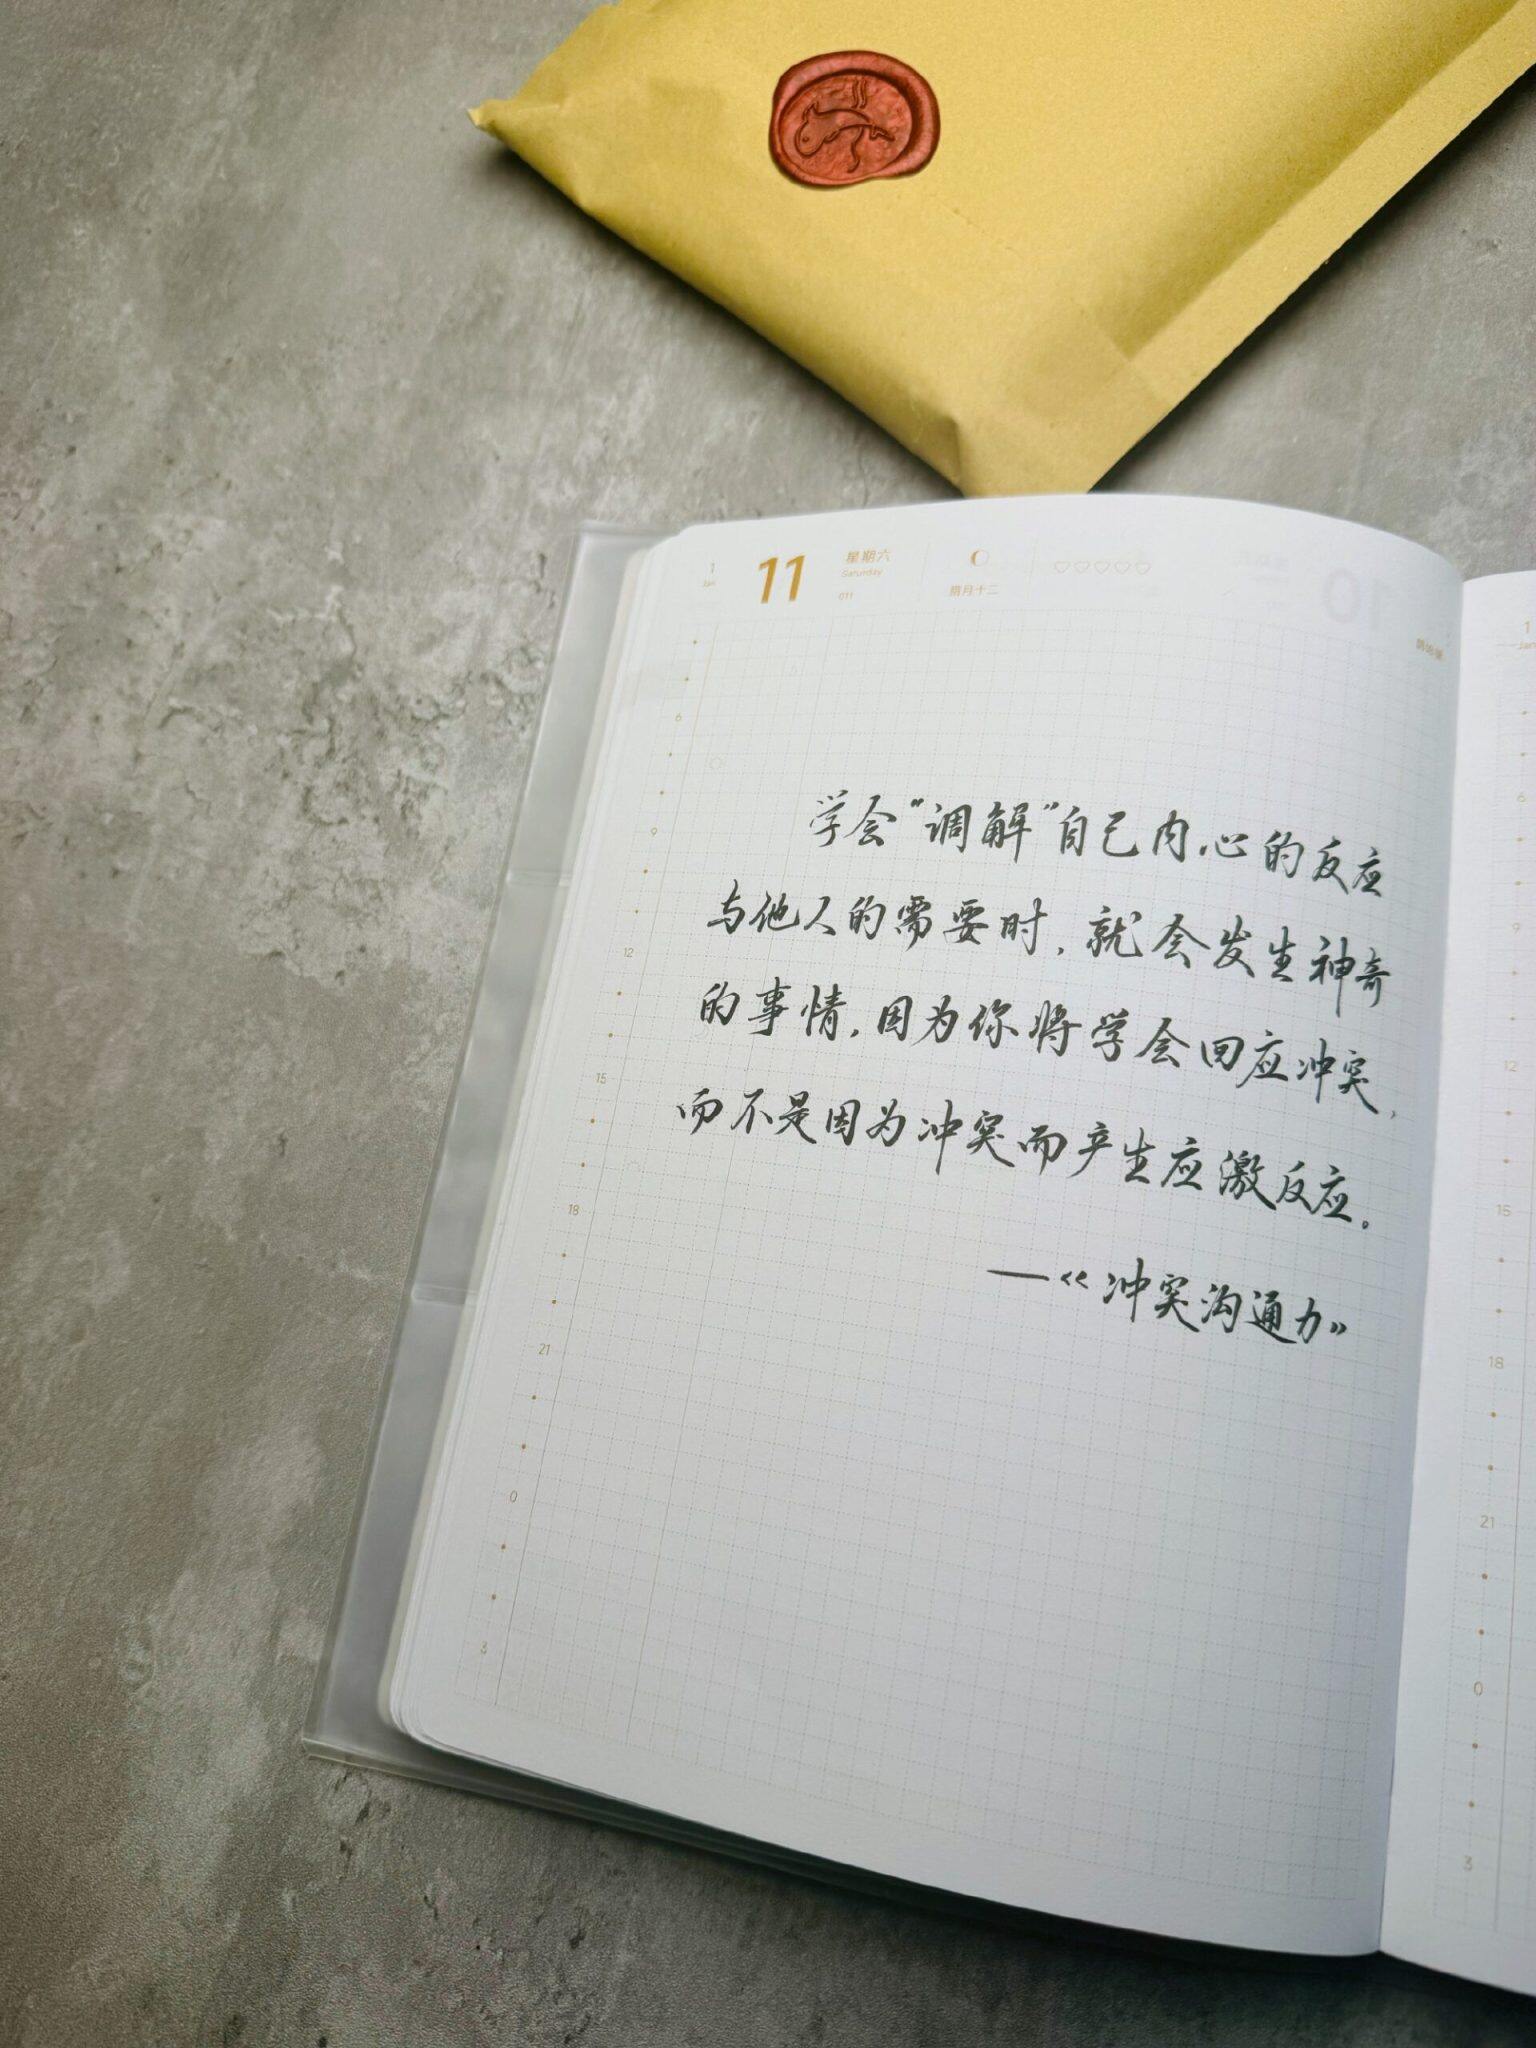 1
Jan
11
星期六
Saturday
011
腊月十二
10
学会“调解”自己内心的反应
与他人的需要时，就会发生神奇
的事情，因为你将学会回应冲突，
而不是因为冲突而产生应激反应。
—《冲突沟通力》
6
9
12
15
18
21
0
3
1
Jan
6
9
12
15
18
21
0
3